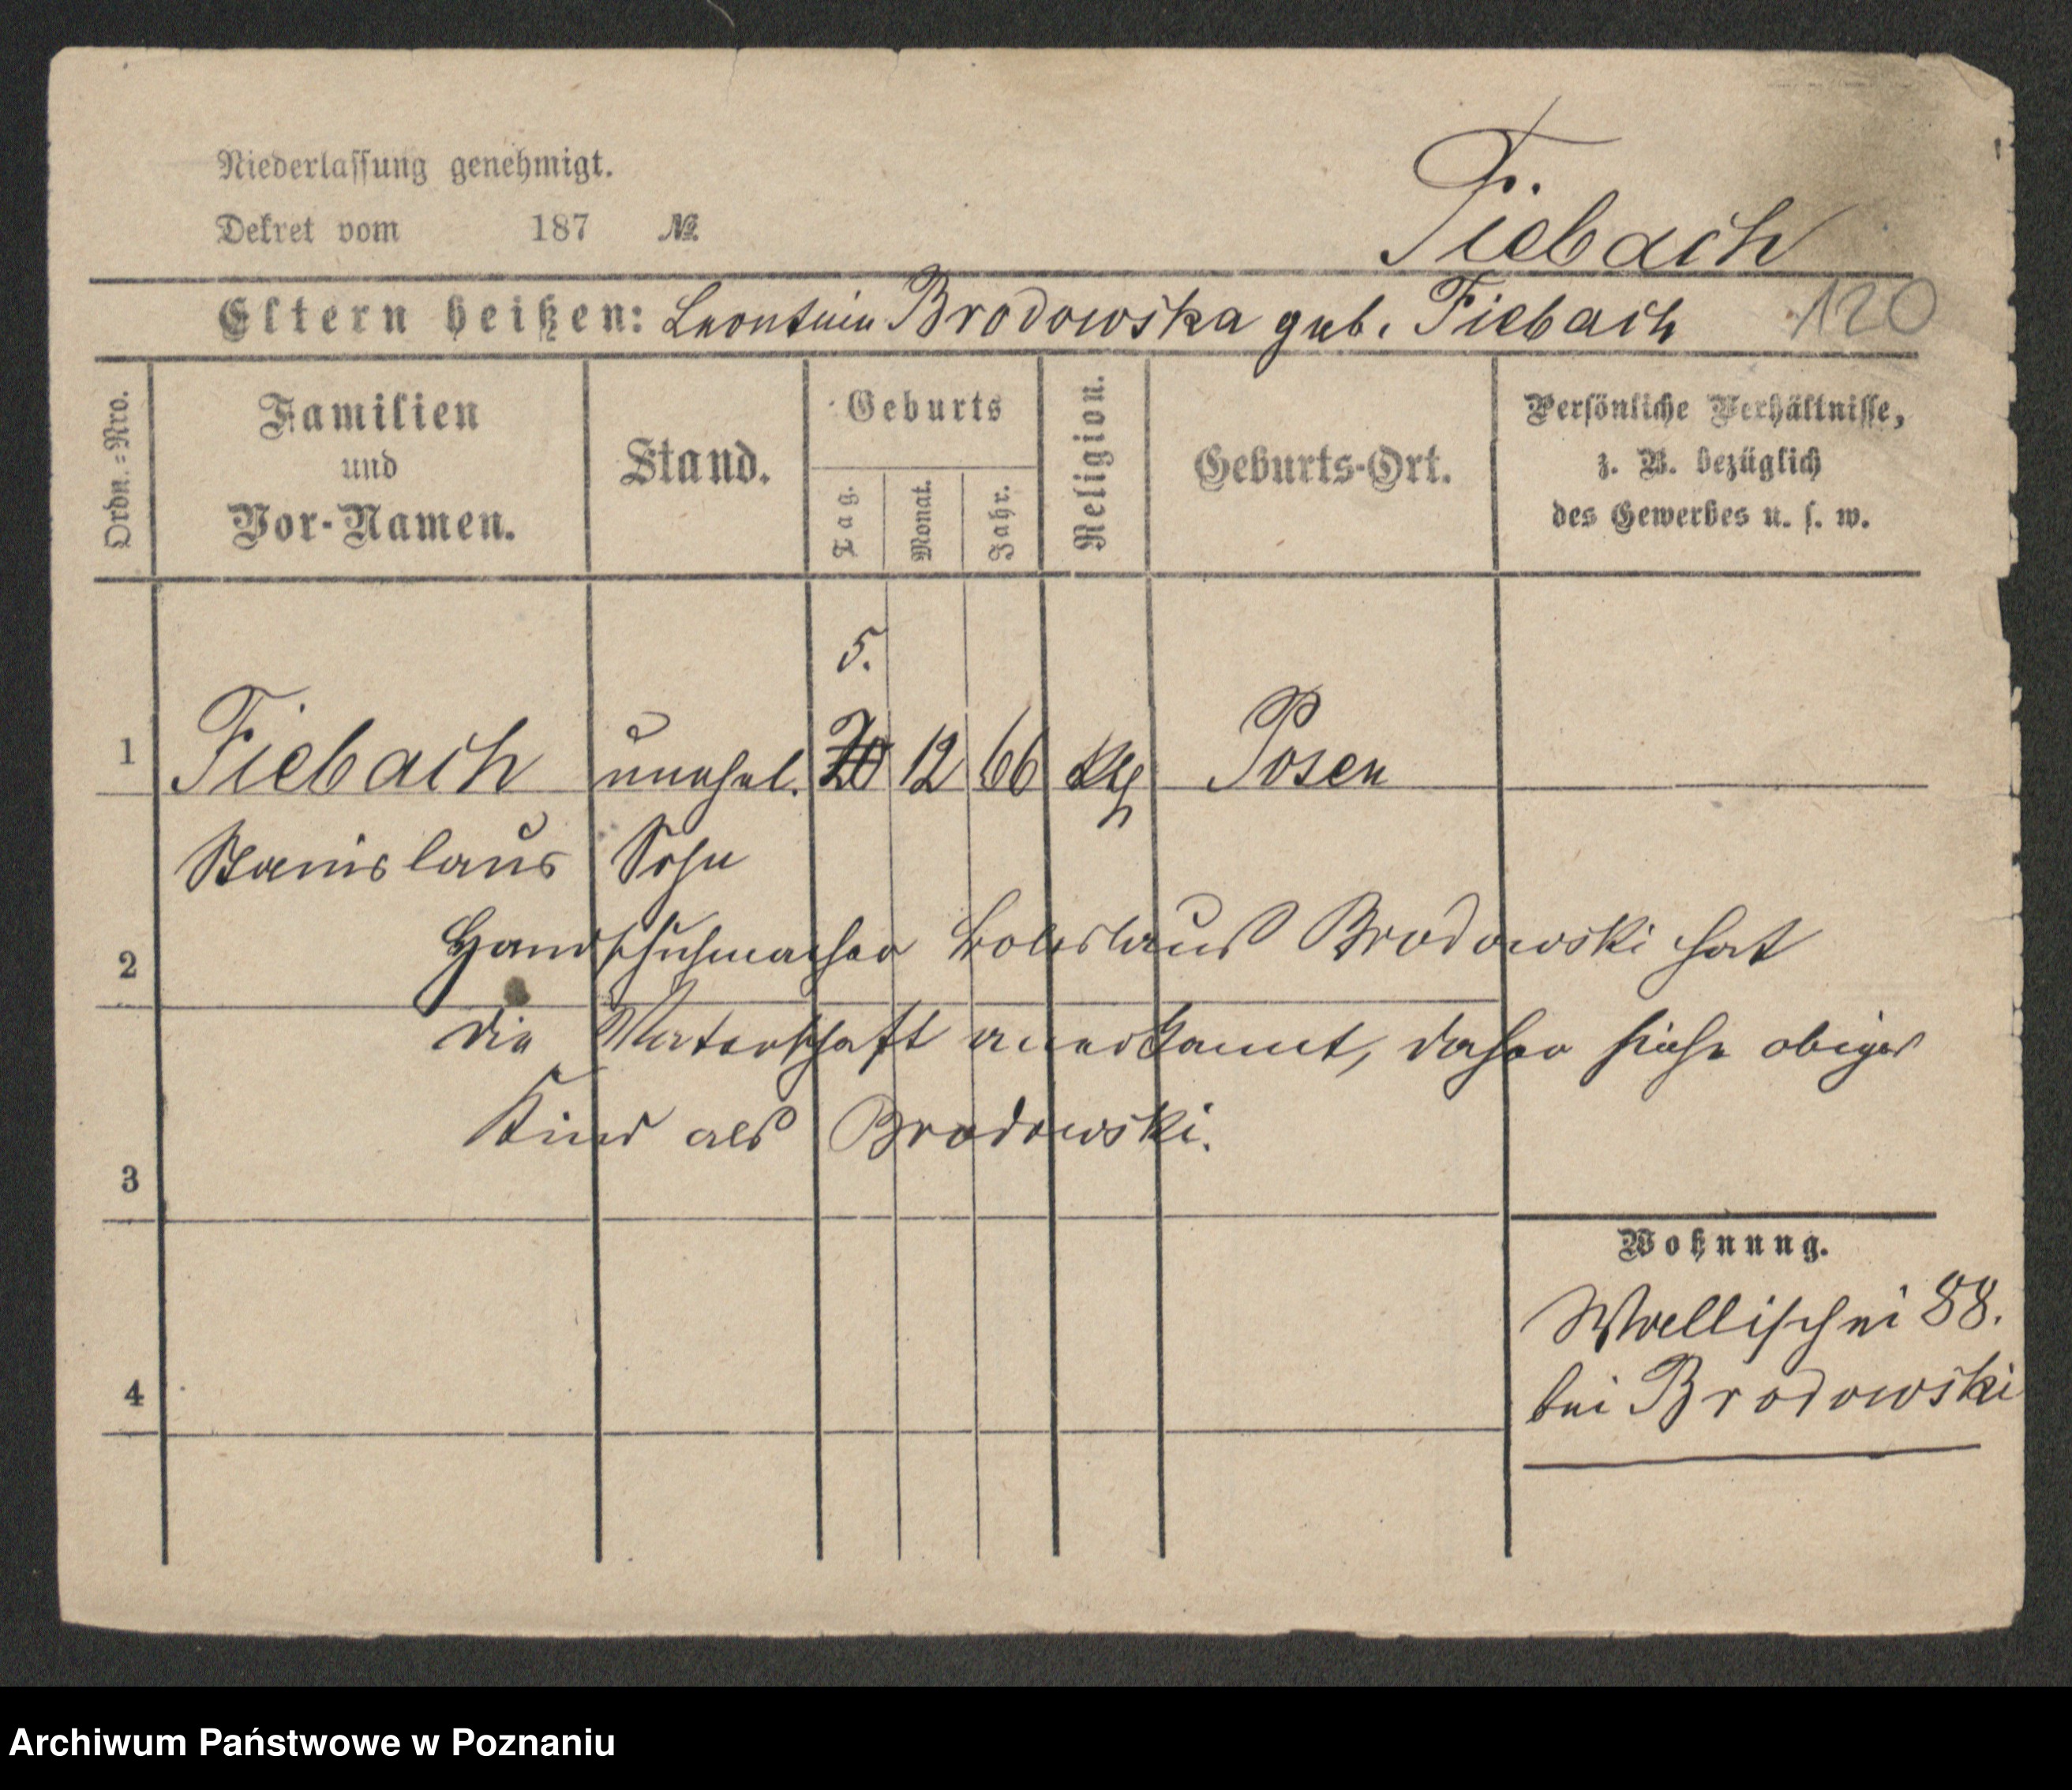 Niederlassung genehmigt.
Dekret vom 187 №
Fiebach
Eltern heißen: Leontine Brodowska geb. Fiebach 120
Ordn.=Nro.
Familien
und
Vor-Namen.
Stand.
Geburts
Tag.
Monat.
Jahr.
Religion.
Geburts-Ort.
Persönliche Verhältnisse,
z. B. bezüglich
des Gewerbes u. s. w.
5.
1 Fiebach unehel. 20 12 66 Posen
Stanislaus Sohn
2 Handschuhmacher Boleslaus Brodowski hat
die Vaterschaft anerkannt, daher siehe obiges
Kind als Brodowski.
3
Wohnung.
Wallischei 88.
4 bei Brodowski
Archiwum Państwowe w Poznaniu